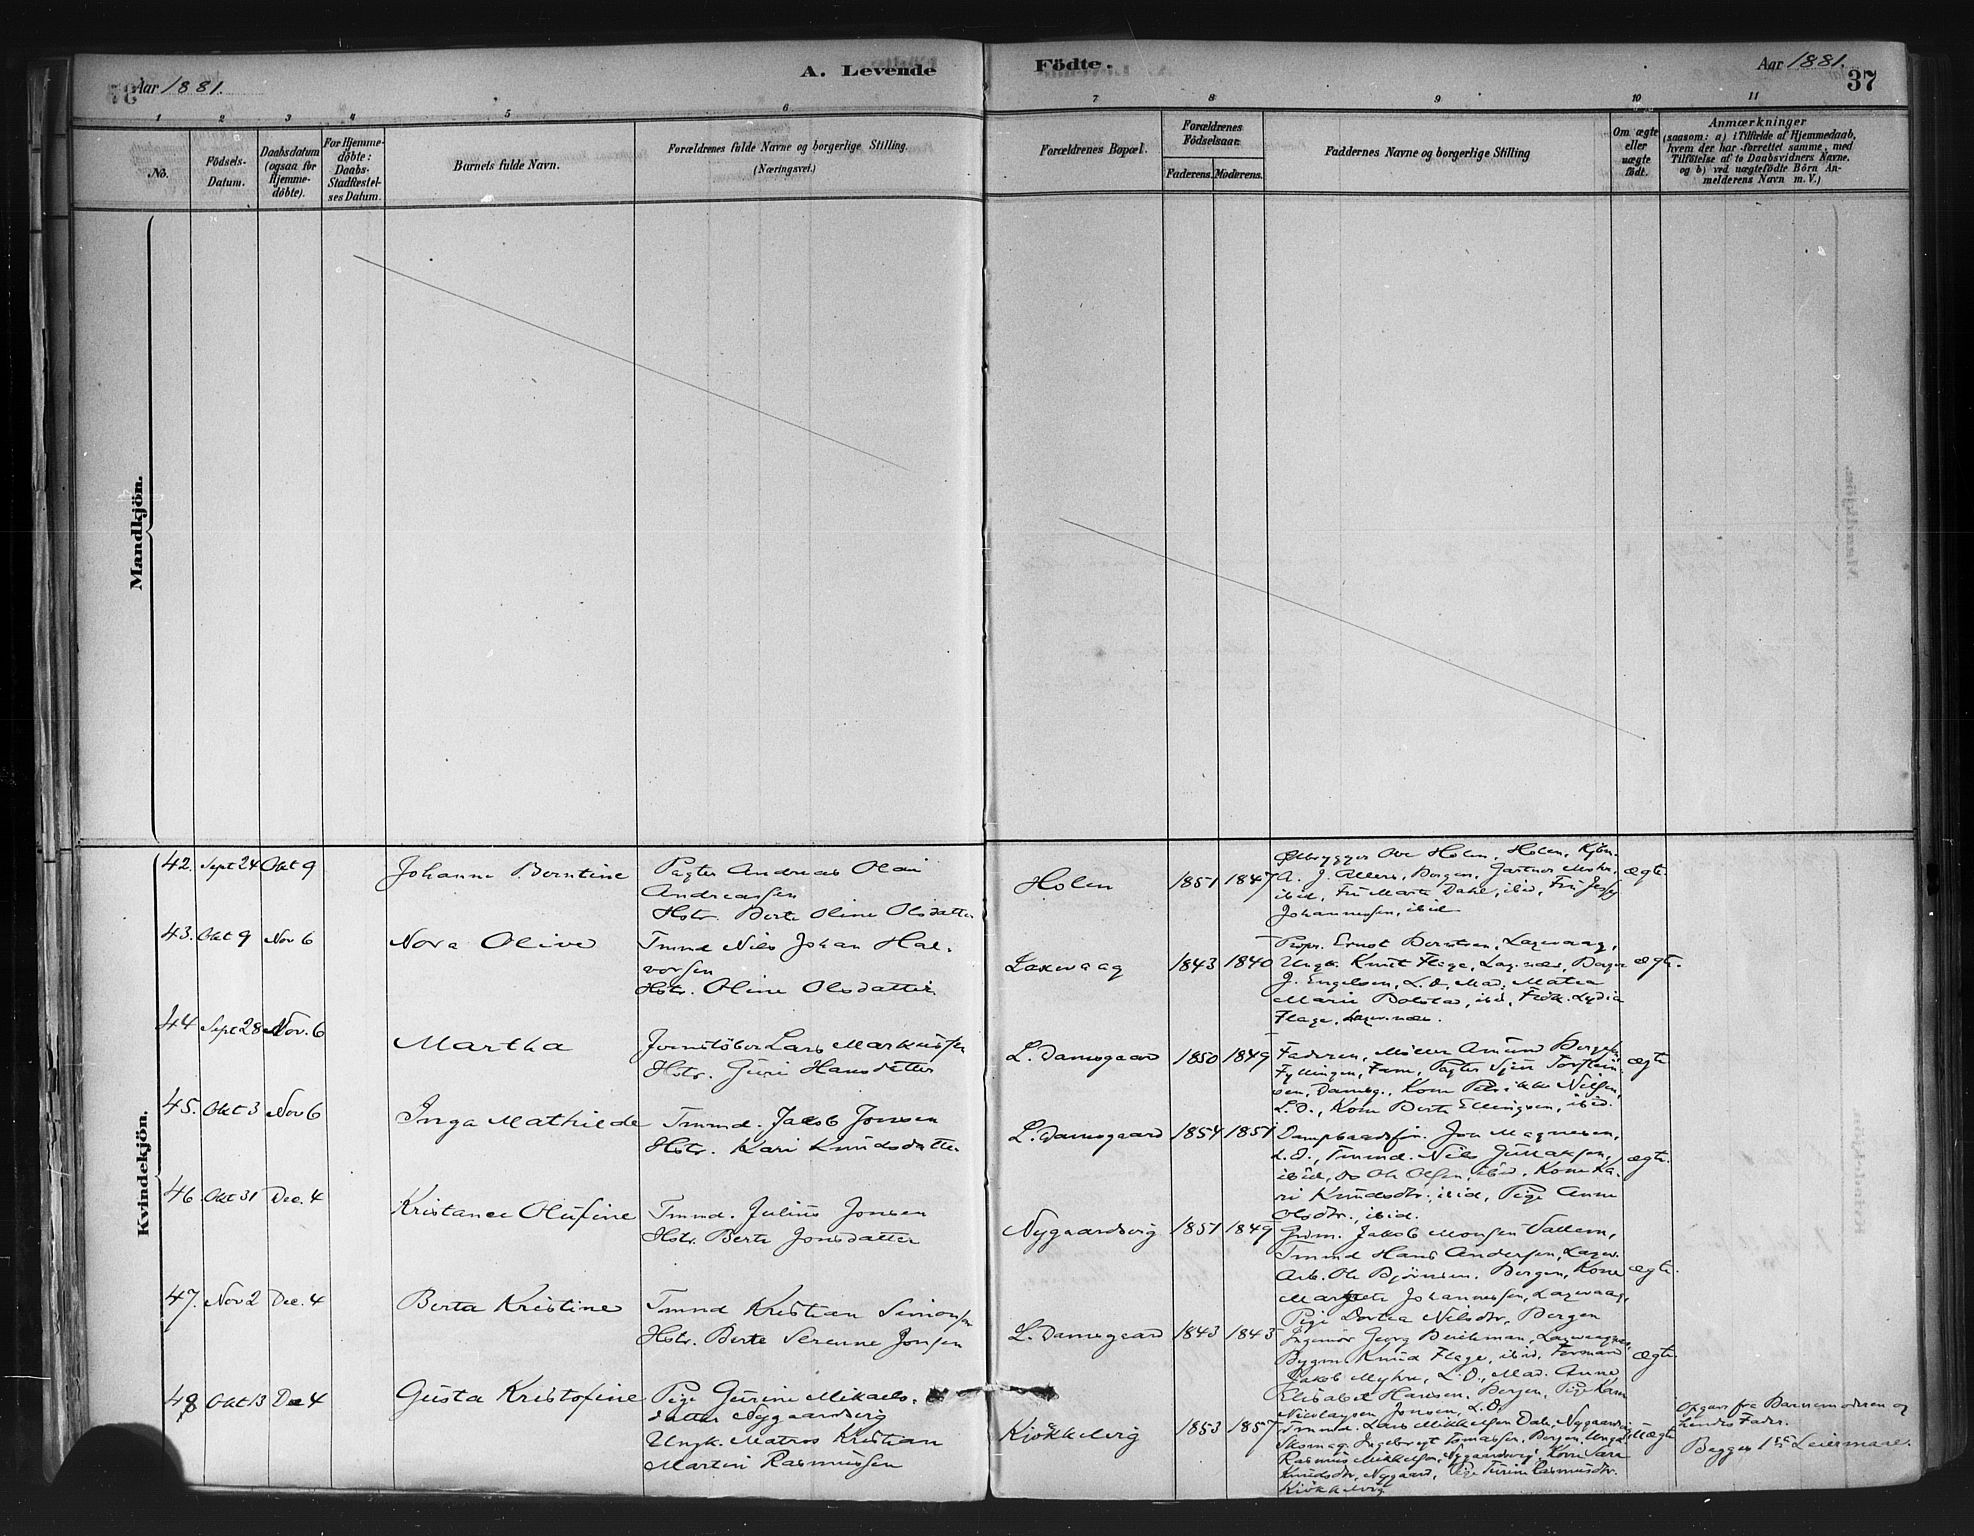 Aar 1881.
A. Levende
Födte.
Aar 1881.
37
1 2 3 4 5 6 7 8 9 10 11
No.
Födsels-
Datum.
Daabsdatum
(ogsaa for
Hjemme-
döbte).
For Hjemme-
döbte:
Daabs-
Stadfæstel-
ses Datum.
Barnets fulde Navn.
Forældrenes fulde Navne og borgerlige Stilling.
(Næringsvei.)
Forældrenes Bopæl.
Forældrenes
Födselsaar.
Faderens. Moderens.
Faddernes Navne og borgerlige Stilling
Om ægte
eller
uægte
födt.
Anmærkninger
(saasom: a) i Tilfælde af Hjemmedaab,
hvem der har forrettet samme, med
Tilföielse af to Daabsvidners Navne.
og b) ved uægtefödte Börn An-
melderens Navn m. V.)
Mandkjön.
Kvindekjön.
42. Sept 24 Okt 9
Johanne Berntine
Pagter Andreas Olai
Andreassen
Hstr. Berte Oline Olsdatter
Holen
1851 1847
Ølbrygger Ole Holen, Holen, Kjøbm.
A. J. Allers, Bergen, Gartner Mohr,
ibid, Fru Marte Dahl, ibid, Frk
Johannessen, ibid
ægte
43. Okt 9 Nov 6
Nora Olive
Tmmd Nils Johan Hal-
vorsen
Hstr. Oline Olsdatter
Laxevaag
1843 1840
Ernst Berntsen, Laxevaag,
Ungk. Knut Flage, Laxevaag,
J. Engelsen, L. D., Mad. Matea
Marie Bolstad, ibid, Frøk. Lydia
Flage,
ægte.
44 Sept 28 Nov. 6
Martha
Lars Markussen
Hstr. Guri Hansdatter
L. Damsgaard
1850 1849
Faderen, Møller
Fyllingen, Pagter Sjur Torstein-
sen, Damsg., Kone Nilsen,
L. D., Kone Berte Ellingsen, ibid.
ægte
45. Okt 3 Nov 6
Inga Mathilde
Tmmd. Jakob Jonsen
Hstr. Kari Knudsdatter
L. Damsgaard
1854 1851
Jon Magnesen,
L. D., Tmmd. Nils Gullaksen,
ibid, Do Ole Olsen, ibid, Kone Ka-
ri Knudsdtr., ibid, Pige Anne
Olsdtr., ibid.
ægte.
46. Okt 31 Dec. 4
Kristance Olufine
Tmmd. Julius Jonsen
Hstr. Berte Jonsdatter
Nygaardsvig
1851 1849
Grdm. Jakob Monsen Vallem,
Tmmd Hans Andersen, Laxev.
Arb. Ole Bjørnsen, Bergen, Kone
Margrete Johannessen, Laxevaag,
Pige Dortea Nilsdtr, Bergen
ægte.
47. Nov 2 Dec. 4
Berta Kristine
Tmmd Kristian Simonsen
Hstr. Berte Serenne Jonsen
L. Damsgaard
1843 1843
Ingeniør Georg
Bygm. Knud Flage, ibid, Formand
Jakob Myhre, L. D., Mad. Anne
Elisabet Hansen, Bergen, Pige Karen
Nicolaysen Jonsen, L. D.
ægte.
48 Okt 13 De 4
Gusta Kristofine
Pige Gurine Mikaels-
datter Nygaardsvig
Ungk. Matros Kristian
Martin Rasmussen
Kjøkkelvig
1853 1857
Tmmd. Lars Mikkelsen Dale, Nygaardsvig,
Skomag. Ingebregt Tomassen, Bergen, Ungk.
Rasmus Mikkelsen, Nygaardsvig, Kone Sara
Knudsdtr, Nygaard, Pige Rasmusdtr.
Kjøkkelvig
uægte
Opgav. fra Barnemoderen og
hendes Fader.
Begges 1ste Leiermaal.